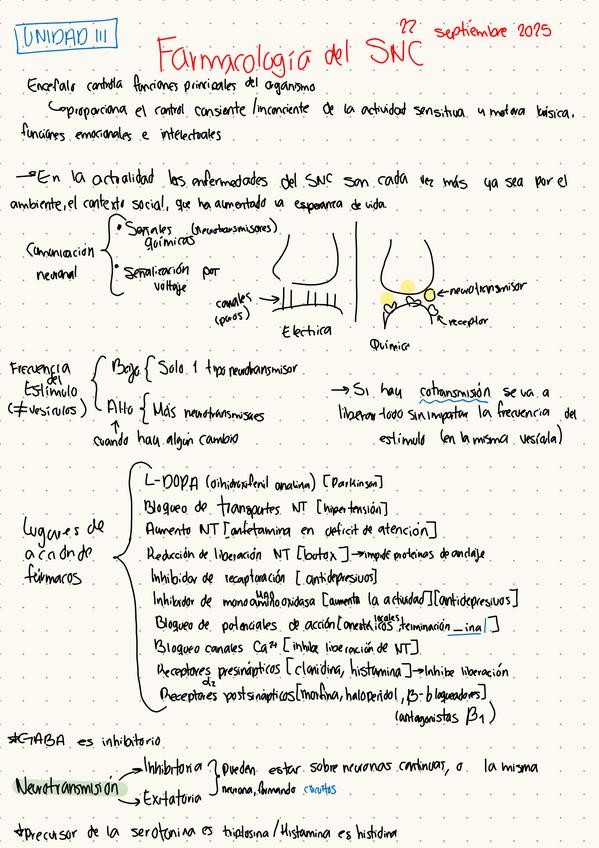 UNIDAD III
22 septiembre 2025
Farmacología del SNC
Encefalo controla funciones principales del organismo
proporciona el control consiente /inconciente de la actividad sensitiva y motora básica,
funciones emocionales e intelectuales
→En la actualidad las enfermedades del SNC son cada vez más ya sea por el
ambiente, el contexto social, que ha aumentado la esperanza de vida
Comunicación neuronal
• Señales (neurotransmisores)
químicas
• Señalización por
voltaje
canales
(poros)
Electrica
neurotransmisor
receptor
Química
Frecuencia
del
Estímulo
(≠vesículas)
Bajo { Solo 1 tipo neurotransmisor
Alto { Más neurotransmisores
↑
cuando hay algún cambio
→ Si hay cotransmisión se va a
liberar todo sin importar la frecuencia del
estímulo (en la misma vesícula)
Lugares de
acción de
fármacos
L-DOPA (dihidroxifenil analina) [Parkinson]
Bloqueo de transportes NT [hipertensión]
Aumento NT [anfetamina en deficit de atención]
Reducción de liberación NT [botox]→impide proteinas de anclaje
Inhibidor de recaptación [antidepresivos]
Inhibidor de monoaminooxidasa [aumenta la actividad][antidepresivos]
MAO
Bloqueo de potenciales de acción [anestésicos locales, terminación _ina]
Bloqueo canales Ca²⁺ [inhibe liberación de NT]
Receptores presinápticos [clonidina, histamina]→Inhibe liberación
α₂
Receptores postsinápticos [morfina, haloperidol, β-bloqueadores]
(antagonistas β₁)
*GABA es inhibitorio
Neurotransmisión
→Inhibitoria
→Exitatoria
Pueden estar sobre neuronas continuas, o la misma
neurona, formando circuitos
*Precursor de la serotonina es triplosina/Histamina es histidina